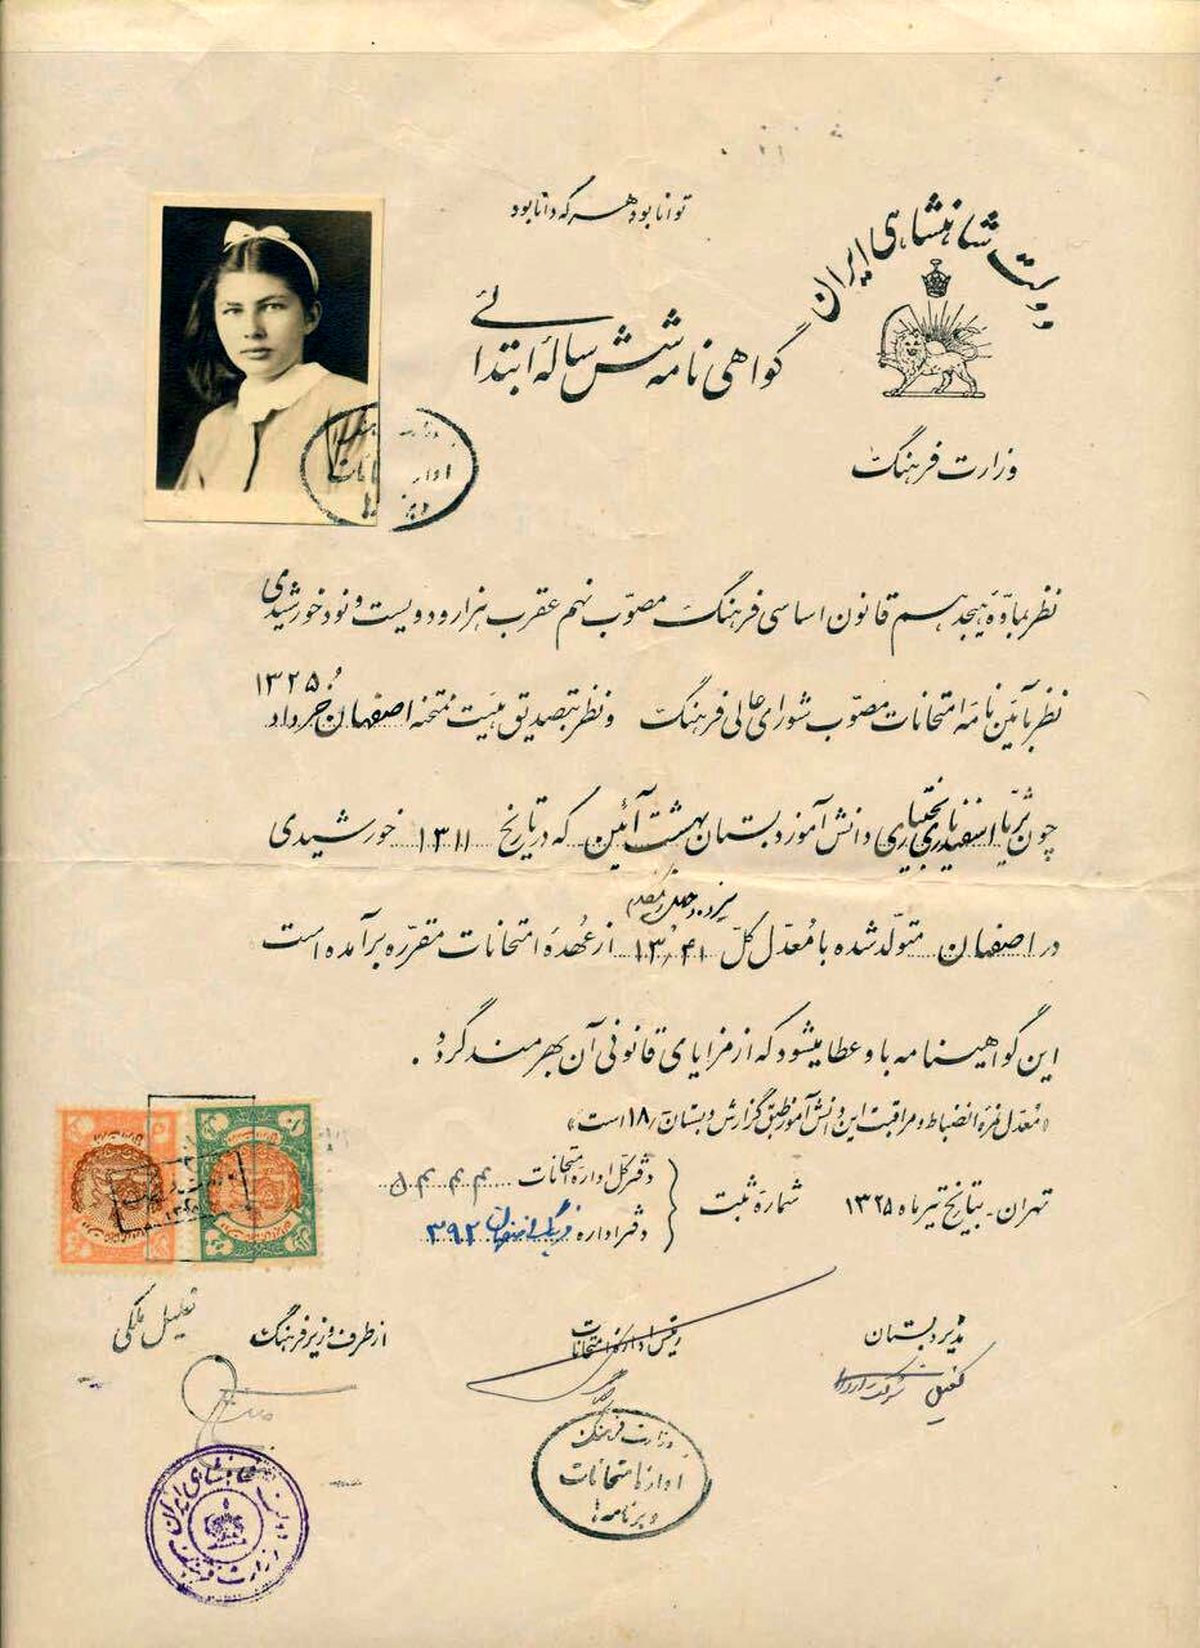 توانا بود هر که دانا بود
دولت شاهنشاهی ایران
گواهی نامه شش سالهٔ ابتدائے
وزارت فرهنگ
نظر بمادّهٔ هیجدهم قانون اساسی فرهنگ مصوّب نهم عقرب هزار و دویست و نود خورشیدی
نظر بآئین نامه امتحانات مصوّب شورای عالی فرهنگ و نظر بتصدیق هیئت ممتحنه اصفهان خرداد ۱۳۲۵
چون ثریا اسفندیاری بختیاری دانش آموز دبستان بهشت آئین که در تاریخ ۱۳۱۱ خورشیدی
در اصفهان متولّد شده با مُعدّل کلّ ۱۳٫۴۱ از عُهدهٔ امتحانات مقرّره برآمده است
این گواهینامه باو عطا میشود که از مزایای قانونی آن بهرمند گردد.
«مُعدّل نمرهٔ انضباط و مراقبت این دانش آموز طبق گزارش دبستان ۱۸ است»
تهران - بتاریخ تیر ماه ۱۳۲۵ شمارهٔ ثبت
دفتر کلّ ادارهٔ امتحانات
دفتر اداره فرهنگ اصفهان ۳۹۲
مدیر دبستان
کفیل
رئیس ادارهٔ امتحانات
از طرف وزیر فرهنگ
وزارت فرهنگ
ادارهٔ امتحانات
و برنامه‌ها
دولت شاهنشاهی ایران
وزارت فرهنگ